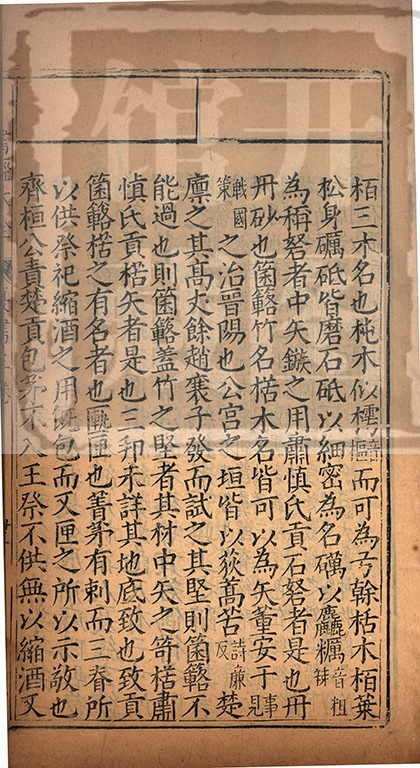 栢三木名也杶木似樗音樞而可為弓榦栝木栢葉
松身礪砥皆磨石砥以細密為名礪以麤糲音粗為稱
砮者中矢鏃之用肅慎氏貢石砮者是也丹
丹砂也箘簵竹名楛木名皆可以為矢董安于事見
戰國策之治晉陽也公宮之垣皆以荻蒿苫詩廉反楚
廩之其髙丈餘趙襄子發而試之其堅則箘簵不
能過也則箘簵蓋竹之堅者其材中矢之笴楛肅
慎氏貢楛矢者是也三邦未詳其地底致也致貢
箘簵楛之有名者也匭匣也菁茅有刺而三脊所
以供祭祀縮酒之用旣包而又匣之所以示敬也
齊桓公責楚貢包茅不入王祭不供無以縮酒又